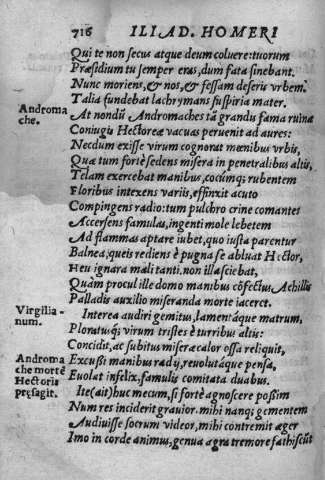 716 ILIAD. HOMERI
Qui te non secus atque deum coluere: tuorum
Præsidium tu semper eras, dum fata sinebant.
Nunc moriens, & nos, & fessam deseris vrbem.
Talia fundebat lachrymans suspiria mater.
Androma
che.
At nondū Andromaches tā grandu fama ruina
Coniugis Hectoreæ vacuas peruenit ad aures:
Necdum exisse virum cognorat mœnibus vrbis,
Qua tum forte sedens misera in penetralibus altis,
Telam exercebat manibus, cocumq; rubentem
Floribus intexens variis, effinxit acuto
Compingens radio: tum pulchro crine comantes
Accersens famulas, ingenti mole lebetem
Ad flammas aptare iubet, quo iusta parentur
Balnea, queis rediens è pugna se abluat Hector,
Heu ignara mali tanti. non illa sciebat,
Quàm procul ille domo manibus cōfectus Achillis
Palladis auxilio miseranda morte iaceret.
Virgilia-
num.
Interea audiri gemitus, lamentáque matrum,
Ploratusq; virum tristes è turribus altis:
Concidit, ac subitus miseræ calor ossa reliquit,
Androma
che mortē
Hectoris
præsagit.
Excussi manibus radij, reuolutáque pensa,
Euolat infelix, famulis comitata duabus.
Ite (ait) huc mecum, si fortè agnoscere possim
Num res inciderit grauior. mihi nanq; gementem
Audiuisse socrum videor, mihi contremit æger
Imo in corde animus, genua ægra tremore fathiscūt